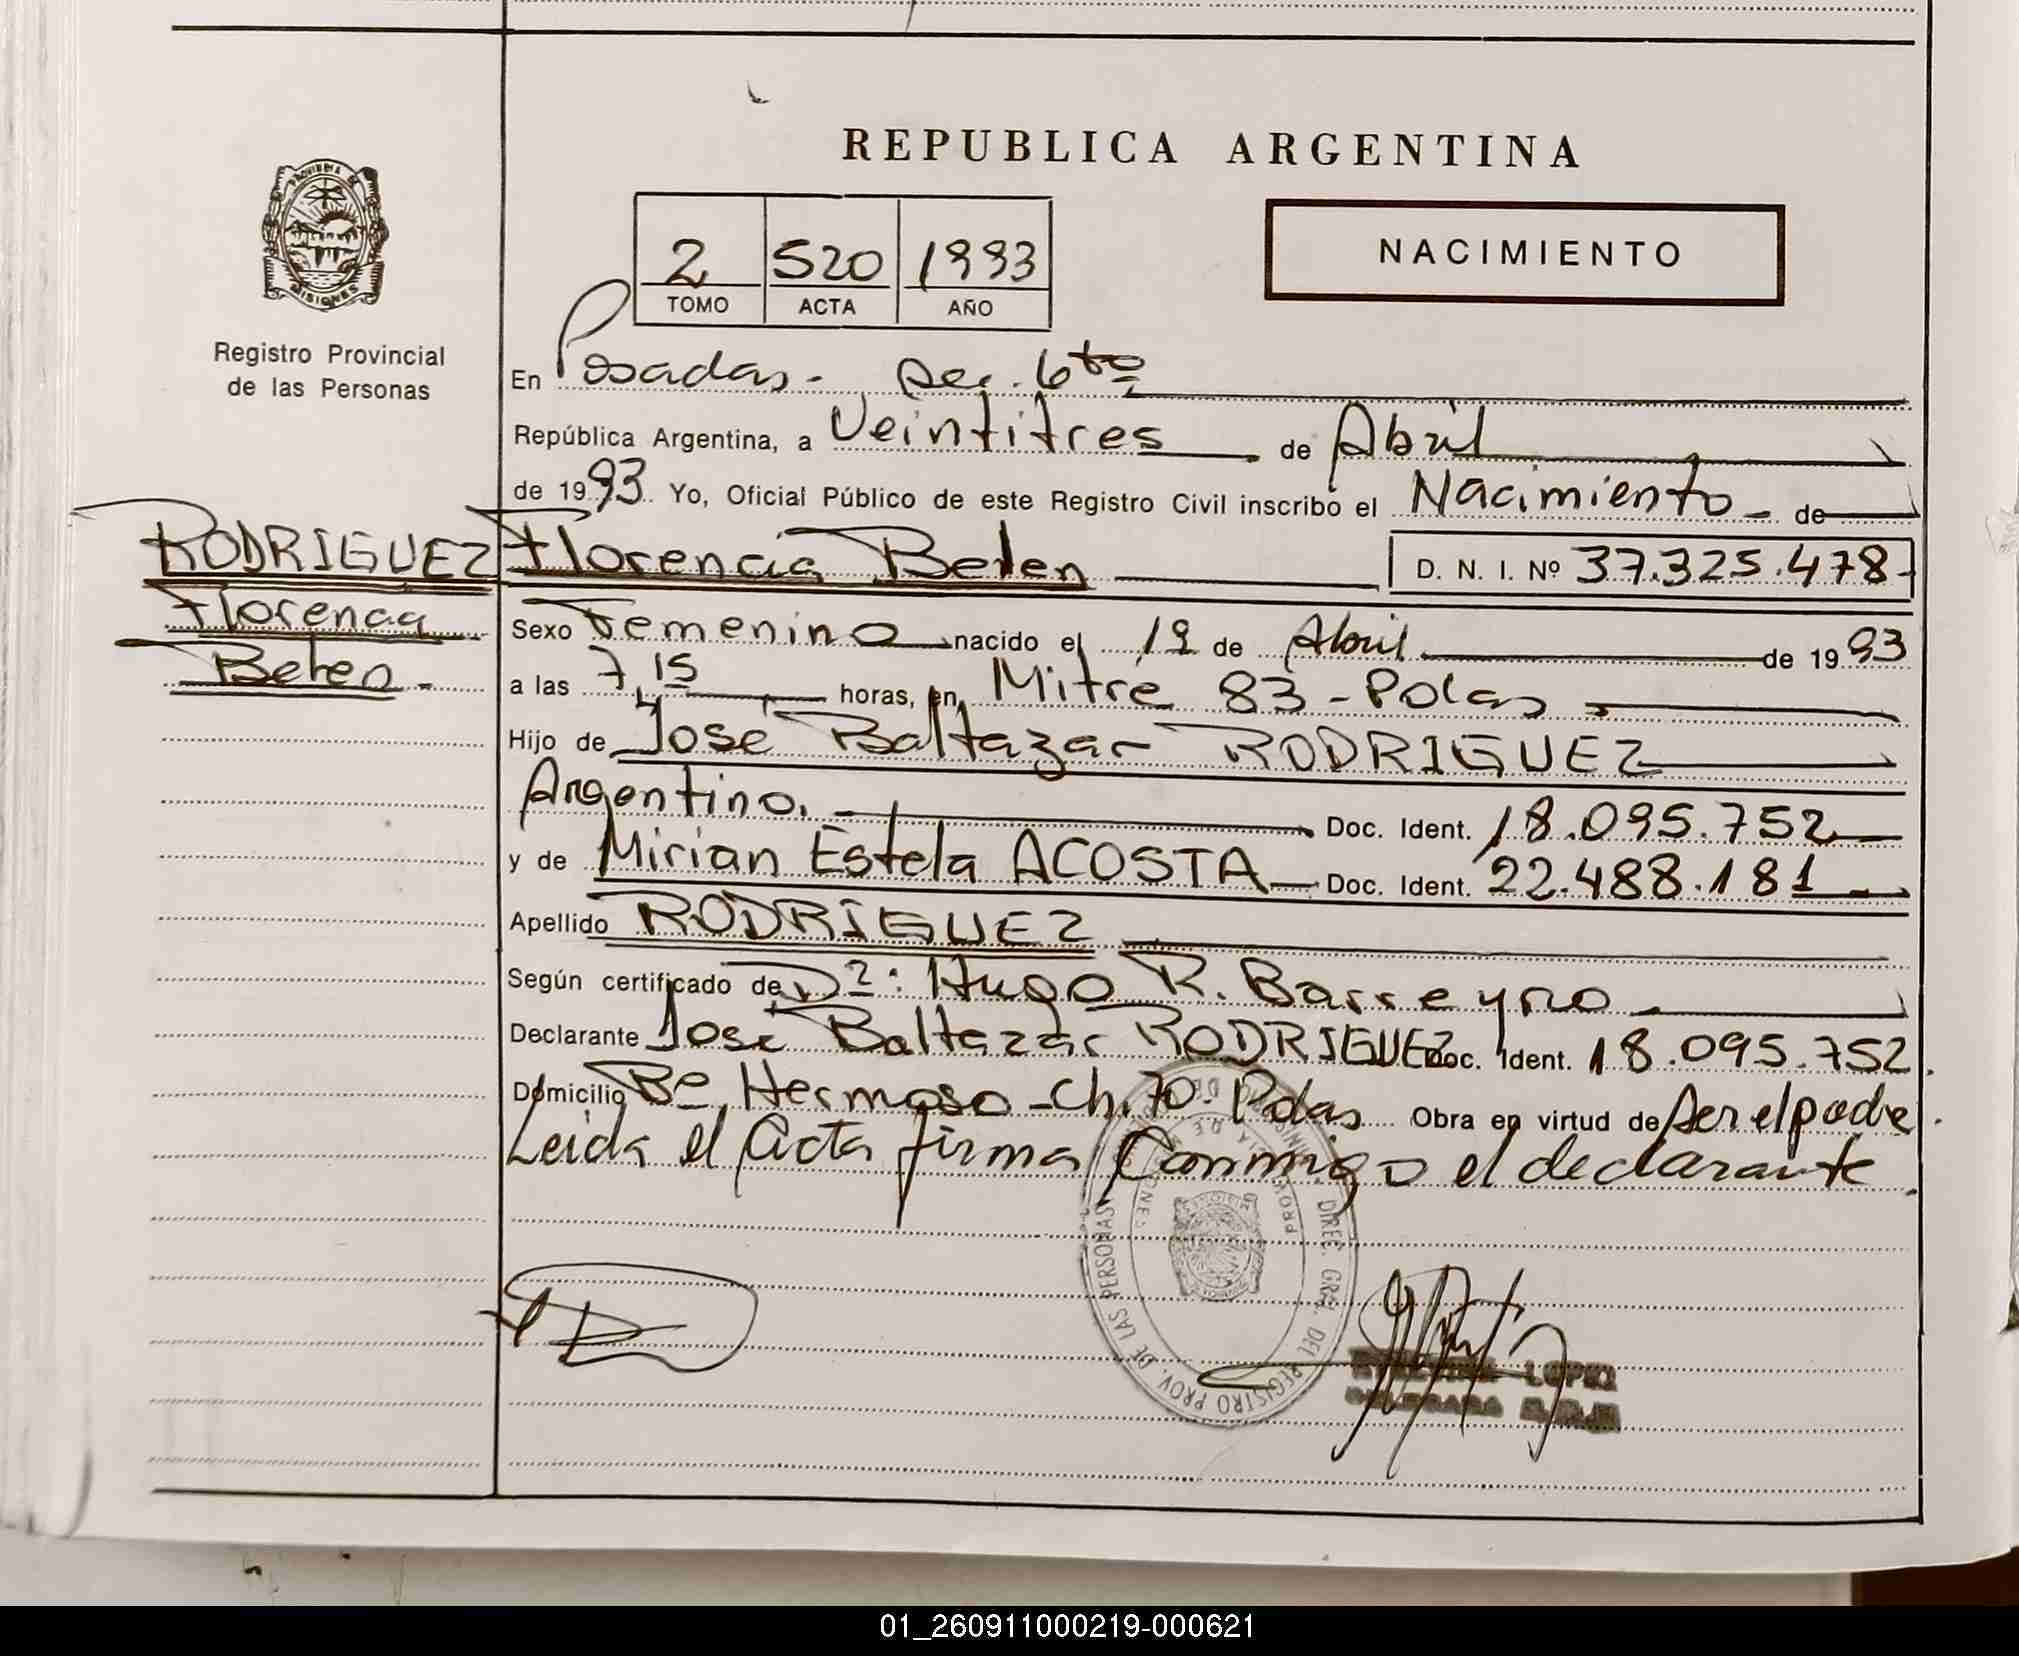 REPUBLICA ARGENTINA
PROVINCIA DE
MISIONES
Registro Provincial
de las Personas
2 520 1993
TOMO ACTA AÑO
NACIMIENTO
En Posadas. Sec. 6to
República Argentina, a Veintitres de Abril
de 1993 Yo, Oficial Público de este Registro Civil inscribo el Nacimiento de
RODRIGUEZ
Florencia
Belen
Florencia Belen D. N. I. Nº 37.325.478
Sexo Femenino nacido el 19 de Abril de 1993
a las 7,15 horas, en Mitre 83 - Pdas
Hijo de José Baltazar RODRIGUEZ
Argentino. Doc. Ident. 18.095.752
y de Mirian Estela ACOSTA Doc. Ident. 22.488.181
Apellido RODRIGUEZ
Según certificado de Dr: Hugo R. Barreyro
Declarante Jose Baltazar RODRIGUEZ Doc. Ident. 18.095.752
Domicilio Bº Hermoso - Ch. 70. Pdas Obra en virtud de Ser el padre.
Leida el Acta firma Conmigo el declarante.
DIREC. GRAL. DEL REGISTRO PROV. DE LAS PERSONAS
LOPEZ
01_260911000219-000621